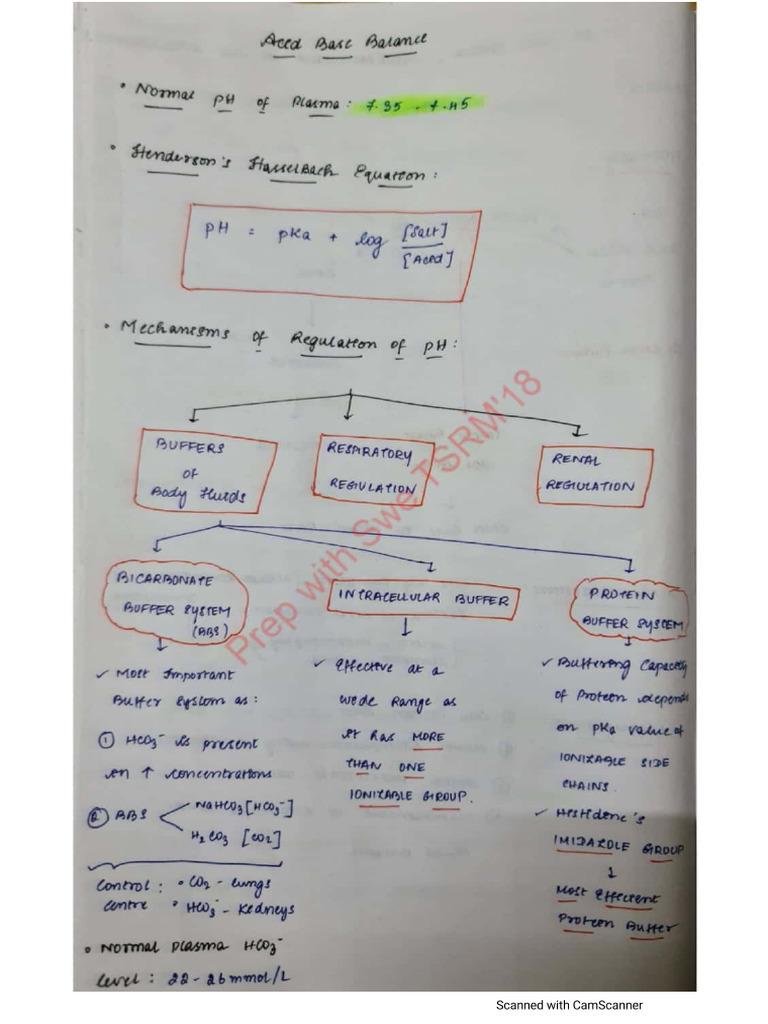 Acid Base Balance
• Normal pH of Plasma: 7.35 - 7.45
• Henderson's Hasselbach Equation:
pH = pKa + log [Salt]
[Acid]
• Mechanisms of Regulation of pH:
BUFFERS
of
Body Fluids
RESPIRATORY
REGULATION
RENAL
REGULATION
BICARBONATE
BUFFER SYSTEM
(BBS)
✓ Most Important
Buffer System as:
① HCO3⁻ is present
in ↑ concentrations
② BBS
NaHCO3 [HCO3⁻]
H2CO3 [CO2]
Control : • CO2 - Lungs
centre • HCO3⁻ - Kidneys
• Normal Plasma HCO3⁻
level : 22 - 26 mmol/L
INTRACELLULAR BUFFER
✓ Effective at a
wide Range as
it has MORE
THAN ONE
IONIZABLE GROUP.
PROTEIN
BUFFER SYSTEM
✓ Buffering Capacity
of Protein depends
on pKa value of
IONIZABLE SIDE
CHAINS.
✓ Histidine's
IMIDAZOLE GROUP
↓
Most Efficient
Protein Buffer
Prep with Swe TSRM'18
Scanned with CamScanner